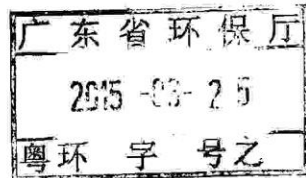 广东省环保厅
2015 -03- 2 5
粤环 字 号之